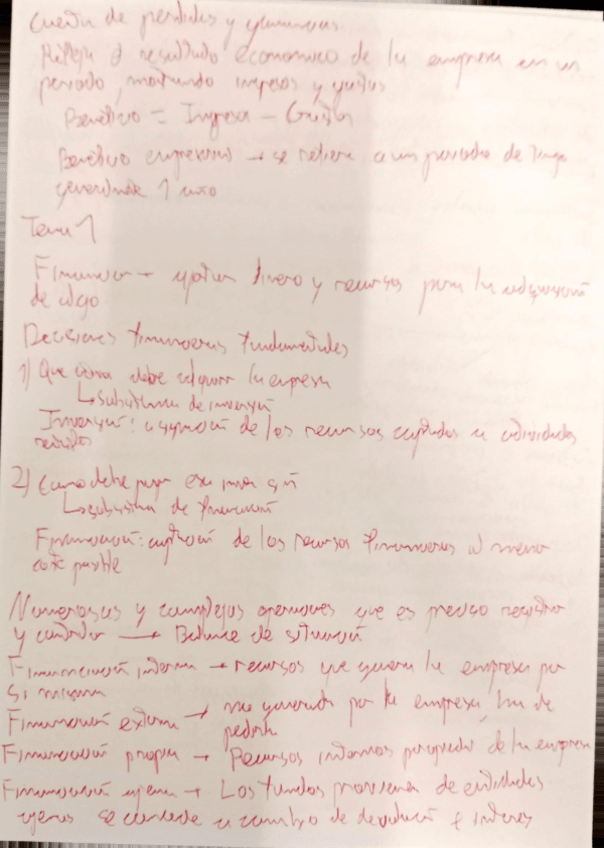 Cuenta de perdidas y ganancias
Refleja el resultado economico de la empresa en un
periodo, mostrando ingresos y gastos
Beneficio = Ingresos - Gastos
Beneficio empresarial → se refiere a un periodo de tiempo
generalmente 1 año
Tema 1
Financiar → aportar dinero y recursos para la adquisición
de algo
Decisiones financieras fundamentales
1) Que debe adquirir la empresa
↳ subsistema de inversión
Inversión: asignación de los recursos captados a actividades
2) Como debe pagar esa inversión
↳ subsistema de financiación
Financiación: captación de los recursos financieros al menor
coste posible
Numerosas y complejas operaciones que es preciso registrar
y controlar → Balance de situación
Financiación interna → recursos que genera la empresa por
si misma
Financiación externa → no generada por la empresa, ha de
pedirla
Financiación propia → Recursos internos propiedad de la empresa
Financiación ajena → Los fondos provienen de entidades
ajenas se concede a cambio de devolución + interes